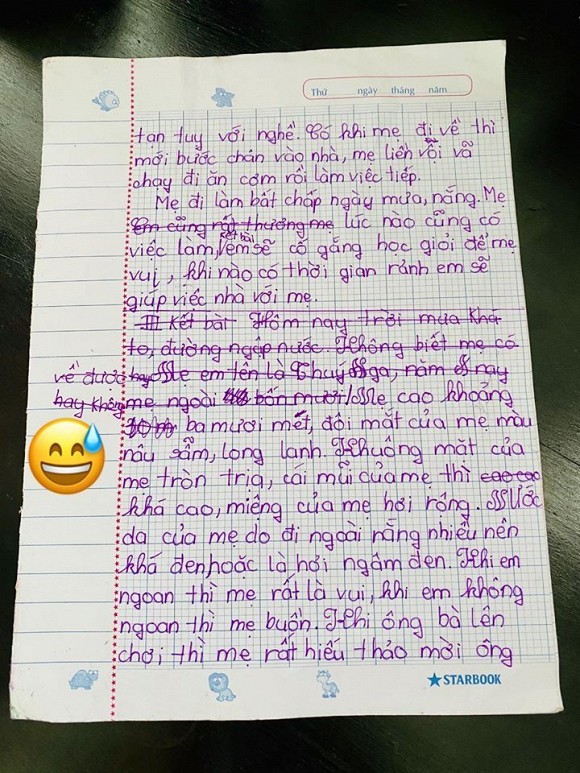 Thứ ngày tháng năm
tan tuy với nghề. Có khi mẹ đi về thì
mới bước chân vào nhà, mẹ liền vội vã
chạy đi ăn cơm rồi làm việc tiếp.
Mẹ đi làm bất chấp ngày mưa, nắng. Mẹ
em cũng rất thương mẹ lúc nào cũng có
kết bài
việc làm, em sẽ cố gắng học giỏi để mẹ
vui, khi nào có thời gian rảnh em sẽ
giúp việc nhà với mẹ.
III Kết bài Hôm nay trời mưa khá
to, đường ngập nước. Không biết mẹ có
về được hay Mẹ em tên là Thuý Nga, năm nay
hay không mẹ ngoài bốn mươi Mẹ cao khoảng
ba mươi mét, đôi mắt của mẹ màu
nâu sẫm, long lanh. Khuông mặt của
mẹ tròn trịa, cái mũi của mẹ thì cao cao
khá cao, miệng của mẹ hơi rộng. Nước
da của mẹ do đi ngoài nắng nhiều nên
khá đen, hoặc là hơi ngâm đen. Khi em
ngoan thì mẹ rất là vui, khi em không
ngoan thì mẹ buồn. Khi ông bà lên
chơi thì mẹ rất hiếu thảo mời ông
STARBOOK